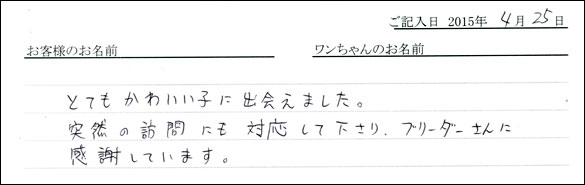 ご記入日 2015年 4月 25日
お客様のお名前 ワンちゃんのお名前
とてもかわいい子に出会えました。
突然の訪問にも対応して下さり、ブリーダーさんに
感謝しています。